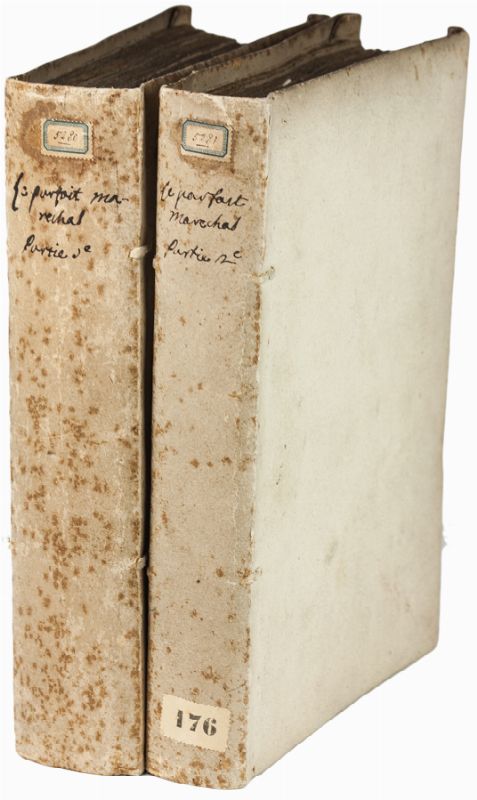 5280
Le parfait ma-
rechal
Partie 1e
5281
Le parfait
Marechal
Partie 2e
176